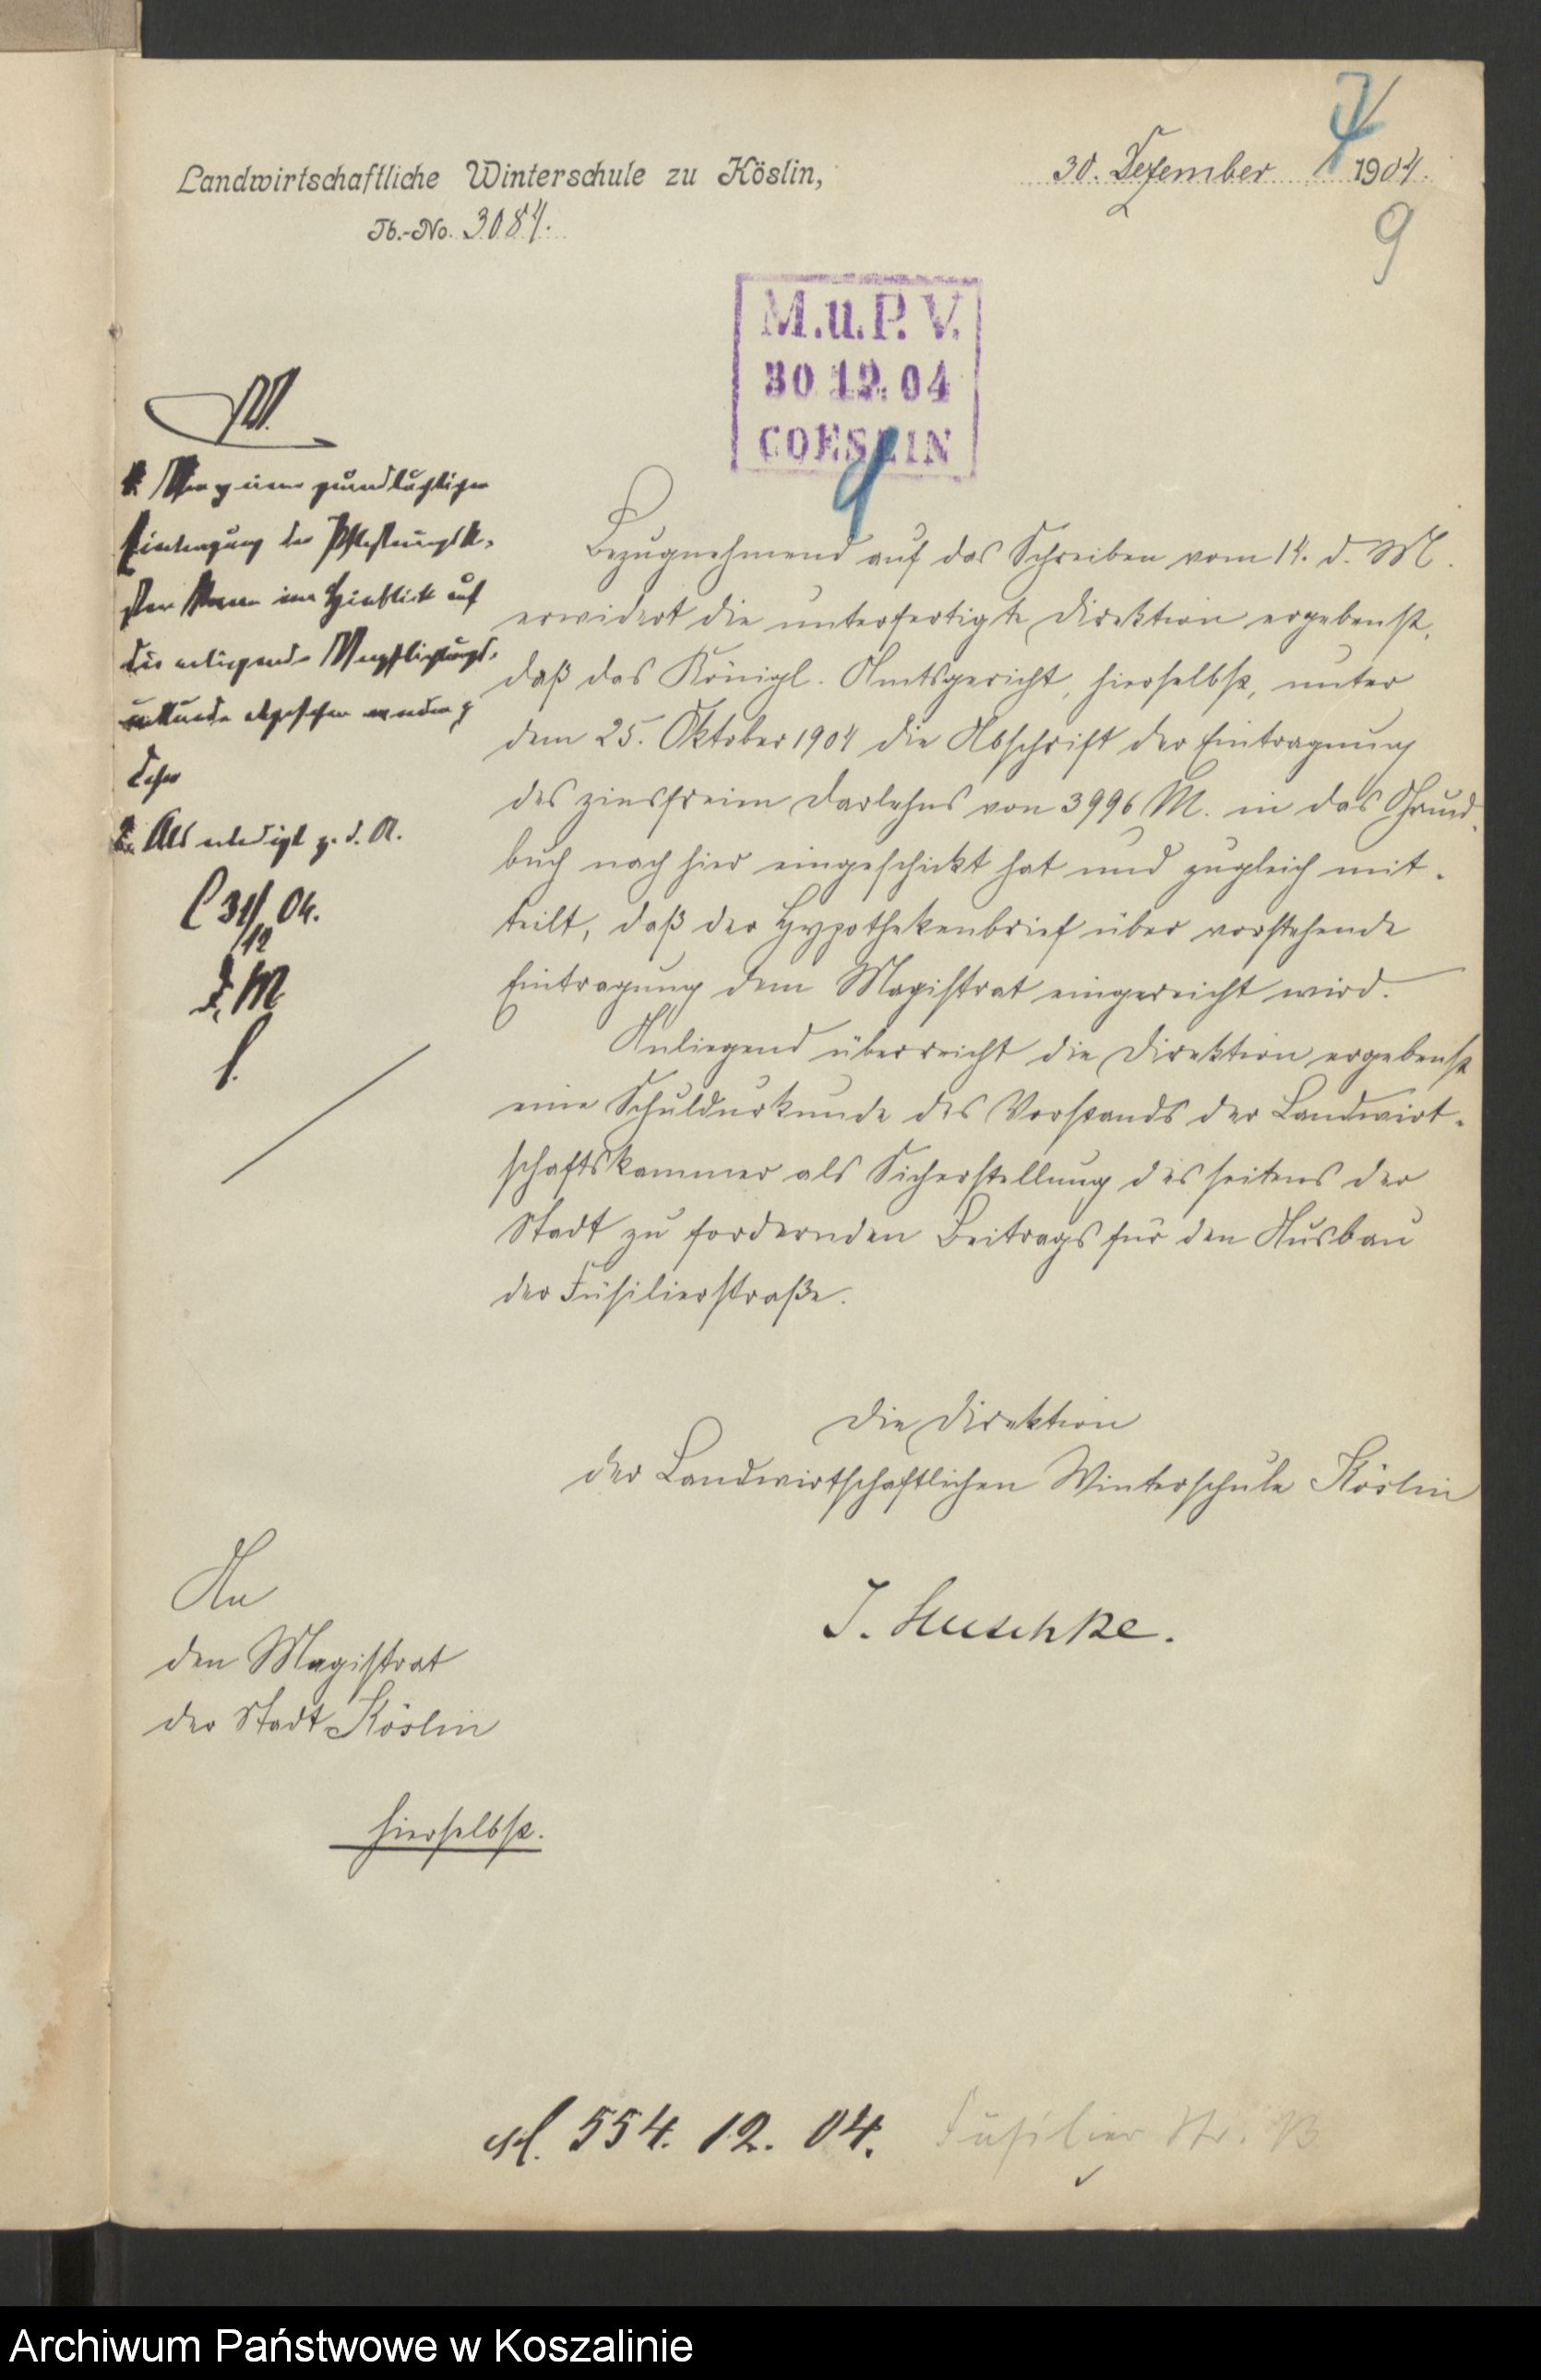 Landwirtschaftliche Winterschule zu Köslin, 30. Dezember 1904.
Tb.-No. 3084.
9
M.u.P.V.
30.12.04
COESLIN
M.
1. Von einer grundbuchlichen
Eintragung der
kann im Hinblick auf
die anliegende Verpflichtungs-
urkunde abgesehen werden
2. Als erledigt z. d. A.
C 31/12 04.
D. M.
Bezugnehmend auf das Schreiben vom 14. d. M.
erwidert die unterfertigte Direktion ergebenst,
daß das Königl. Amtsgericht, hierselbst, unter
dem 25. Oktober 1904 die Abschrift der Eintragung
des zinsfreien Darlehns von 3996 M. in das Grund-
buch nach hier eingeschickt hat und zugleich mit-
teilt, daß der Hypothekenbrief über vorstehende
Eintragung dem Magistrat eingereicht wird.
Anliegend überreicht die Direktion ergebenst
eine Schuldurkunde des Vorstands der Landwirt-
schaftskammer als Sicherstellung des seitens der
Stadt zu fordernden Beitrags für den Ausbau
der Füsilierstraße.
Die Direktion
der Landwirtschaftlichen Winterschule Köslin
J. Huschke.
An
den Magistrat
der Stadt Köslin
hierselbst.
554. 12. 04. Füsilier Str. B
Archiwum Państwowe w Koszalinie